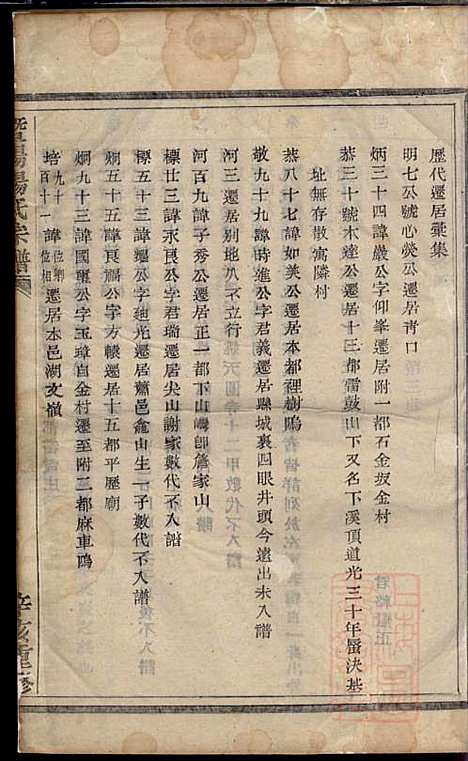 歷代遷居彙集
明七公號心熒公遷居靑口
炳三十四諱嚴公字仰峯遷居附一都石金坂金村
恭三十號木達公遷居十三都雷鼓山下又名下溪頂道光三十年蜃決基
址無存散寓隣村
恭八十七諱如美公遷居本都裡樹鳴
敬九十九諱時進公字君義遷居縣城裏四眼井頭今遠出未入譜
河三遷居別地久不立行
河百九諱子秀公遷居正一都下山嶼卽詹家山
標廿三諱永良公字君瑞遷居尖山謝家數代不入譜
標五十三諱字廸光遷居蕭邑龕山生一子數代不入譜
烱五十五諱良福公字方轅遷居十五都平歷廟
烱九十三諱國璽公字玉璋自金村遷至附二都麻車鳴
培九十百十一諱位鄉位相遷居本邑湖文嶺
暨陽楊氏宗譜
辛亥重修